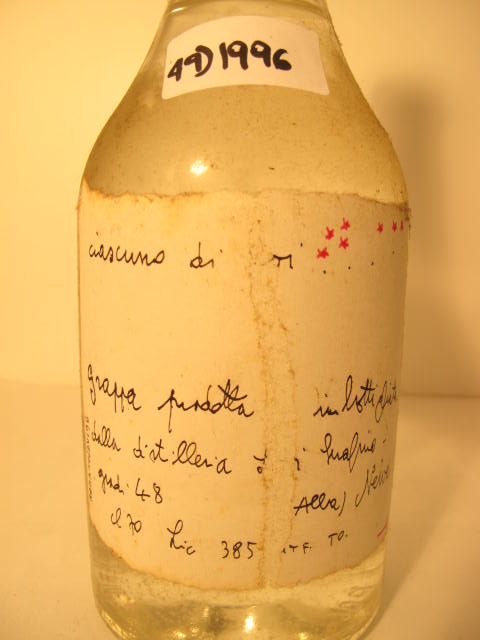 49) 1996
ciascuno di noi . . . .
grappa prodotta imbottigliata
dalla distilleria
gradi 48 Alba) Neive
cl 70 Lic 385 UTF. TO.